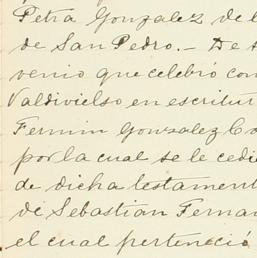 Petra Gonzalez de l
de San Pedro.- De
venio que celebró con
Valdivielso en escritur
Fermin Gonzalez Co
por la cual se le cedi
de dicha testament
de Sebastian Ferna
el cual perteneció